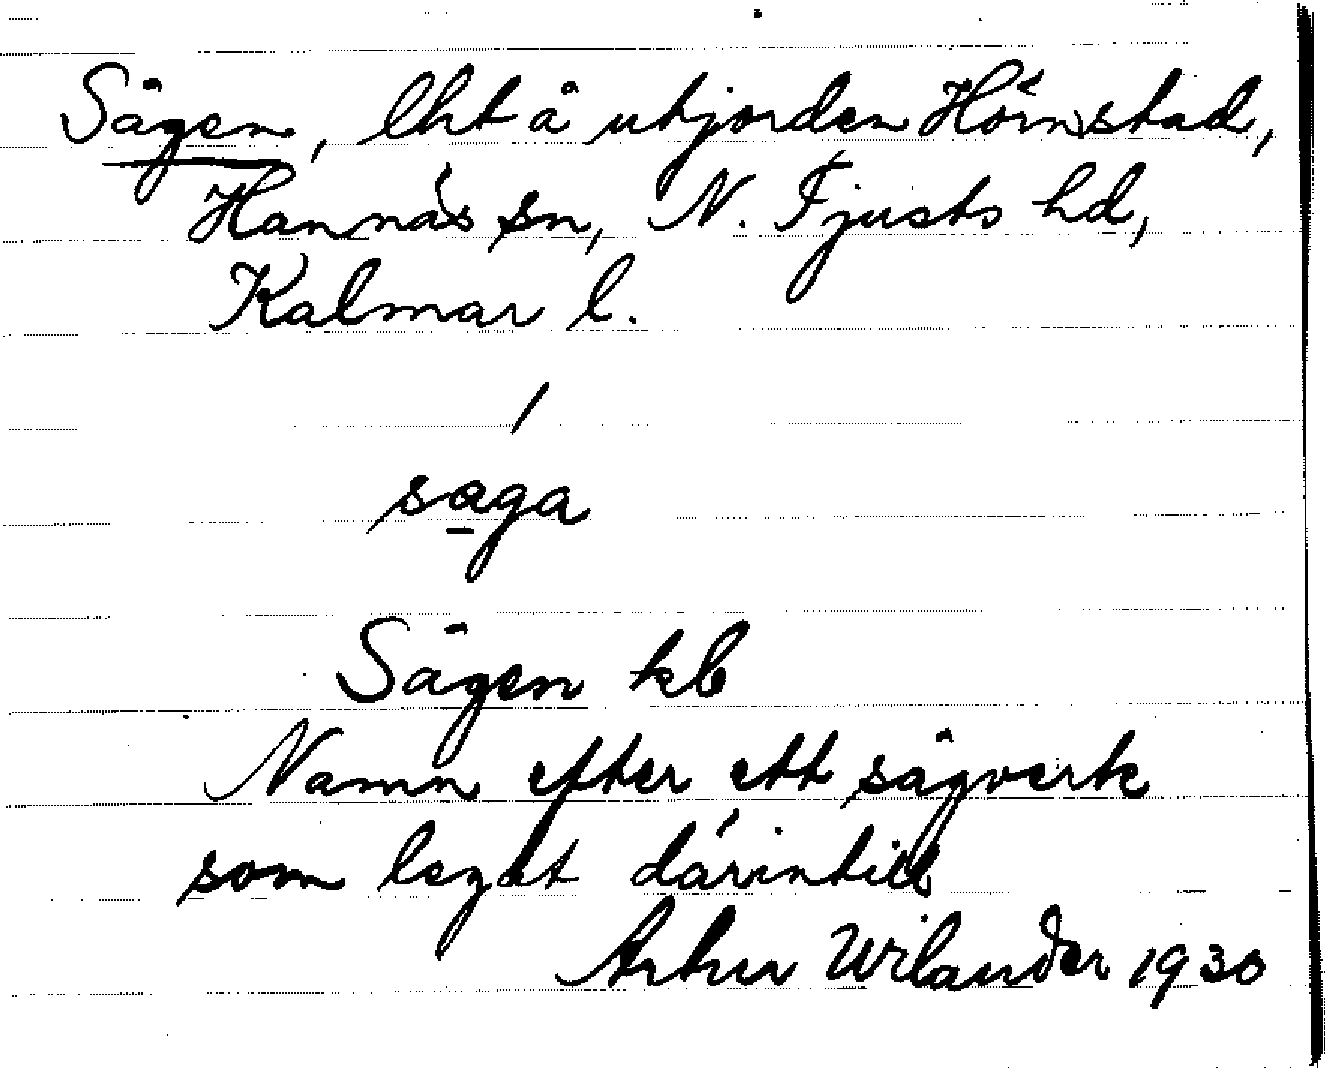 Sågen, lht å utjorden Hörnstad,
Hannäs sn, N. Tjusts hd,
Kalmar l.
/
saga
Sågen kb
Namn efter ett sågverk
som legat därintill
Artur Wilander 1930